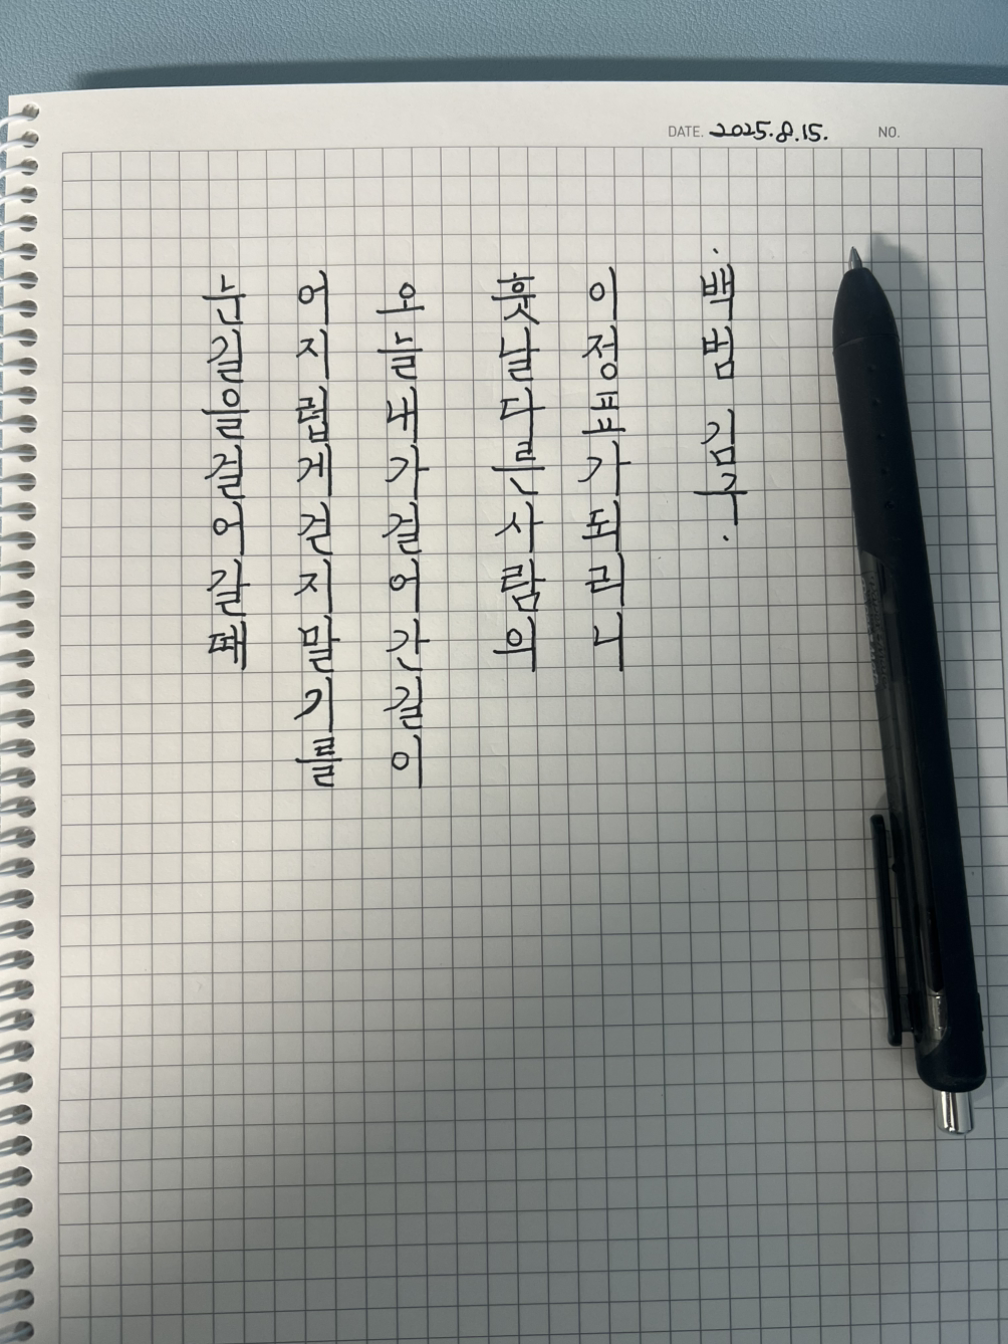 DATE. 2025.8.15. NO.
눈길을걸어갈때
어지럽게걷지말기를
오늘내가걸어간길이
훗날다른사람의
이정표가되리니
· 백범 김구 ·